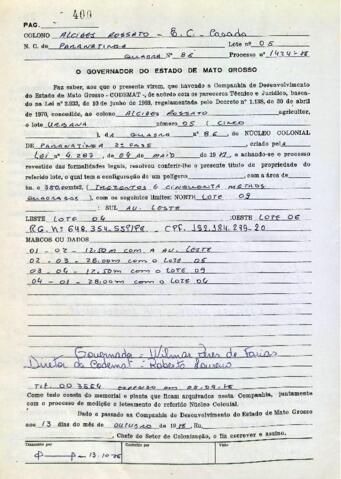 PAG. 400
COLONO ALCIDES ROSSATO - B.C. - Casado
N. C. de PARANATINGA Lote nº 05
QUADRA Nº 86 Processo nº 1424-86
O GOVERNADOR DO ESTADO DE MATO GROSSO
Faz saber, aos que o presente virem, que havendo a Companhia de Desenvolvimento
do Estado de Mato Grosso - CODEMAT -, de acordo com os pareceres Técnico e Jurídico, basea-
do na Lei nº 2.933, de 10 de junho de 1969, regulamentada pelo Decreto nº 1.138, de 30 de abril
de 1970, concedido, ao colono ALCIDES ROSSATO agricultor,
o lote URBANA número 05 (CINCO
), da QUADRA nº 86, do NÚCLEO COLONIAL
DE PARANATINGA 2ª FASE, criado pela
Lei nº 4.287, de 04 de MAIO de 1981, e achando-se o processo
revestido das formalidades legais, resolveu conferir-lhe o presente título de propriedade do
referido lote, o qual tem a configuração de um polígono com a área de
350,00mts2, (TREZENTOS E CINQUENTA METROS
QUADRADOS), com os seguintes limites: NORTE LOTE 09
; SUL AV. LESTE
LESTE LOTE 04 ;OESTE LOTE 06
R.G. Nº 648.354.SSP/PR - CPF. 192.184.279-20
MARCOS OU DADOS
01 - 02 - 12.50m COM A AU. LESTE
02 - 03 - 28.00m COM O LOTE 05
03 - 04 - 12.50m COM O LOTE 09
04 - 01 - 28.00m COM O LOTE 04
Governado - Wilmar Peres de Farias
Diretor da Codemat - Roberto Loureiro
Tit. 003554 EXPEDIDO EM 08-09-86
Como tudo consta do memorial e planta que ficam arquivados nesta Companhia, juntamente
com o processo de medição e loteamento do referido Núcleo Colonial.
Dado e passado na Companhia de Desenvolvimento do Estado de Mato Grosso
aos 13 dias do mês de OUTUBRO de 1986. Eu,
, Chefe do Setor de Colonização, o fiz escrever e assino.
Transcrito por
Conferido por
Visto
13-10-86